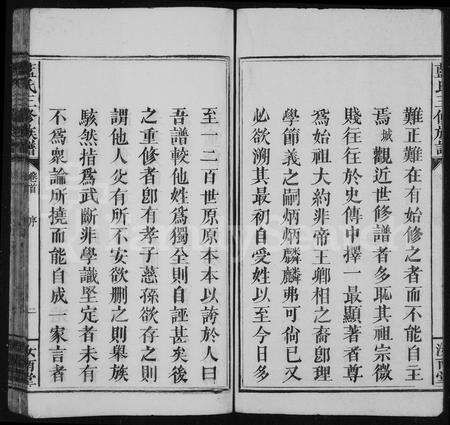 難正難在有始修之者而不能自主
焉城觀近世修譜者多恥其宗微
賤往往於史傳中擇一最顯著者尊
爲始祖大約非帝王卿相之裔卽理
學節義之嗣炳炳麟麟弗可尙已又
必欲溯其最初自受姓以至今日多
至一二百世原原本本以誇於人曰
吾譜較他姓爲獨全則自誣甚矣後
之重修者卽有孝子慈孫欲存之則
謂他人必有所不安欲刪之則舉族
駭然指爲武斷非學識堅定者未有
不爲衆論所撓而能自成一家言者
藍氏三修族譜
卷首 序
二
汝南堂